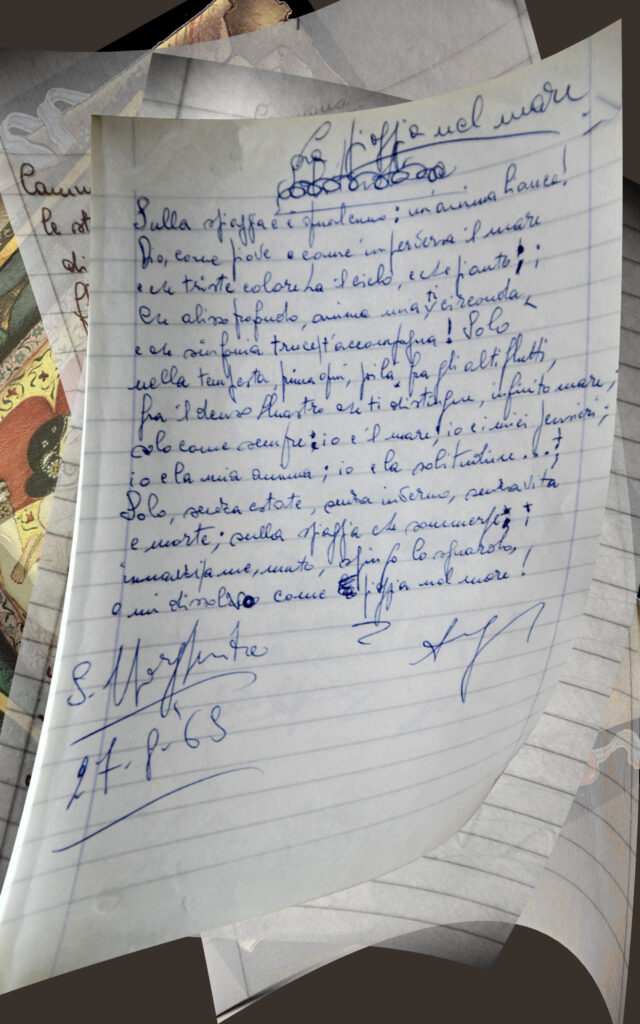 La pioggia nel mare
Sulla spiaggia è; un'anima stanca!
Dio, come piove e come imperversa il mare
e che triste colore ha il cielo, e che pianto;
che abisso profondo, anima mia, ti circonda,
e che sinfonia truce t'accompagna! Solo
nella tempesta, prima qui, poi là, fra gli alti flutti,
fra il denso che ti distingue, infinito mare;
solo come sempre: io e il mare, io e i miei pensieri;
io e la mia anima; io e la solitudine...;
Solo, senza estate, senza inferno, senza vita
e morte; sulla spiaggia che sommerge;
innanzi a me, muto, spingo lo sguardo,
e mi dissolvo come pioggia nel mare!
S. Margherita
27-8-'69
Cammi
le st
di